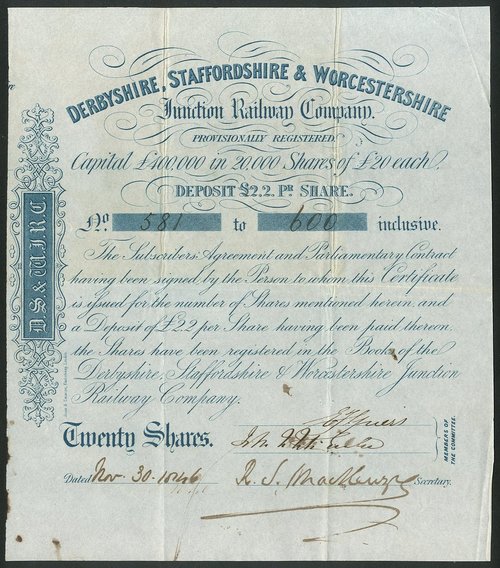 DERBYSHIRE, STAFFORDSHIRE & WORCESTERSHIRE
Junction Railway Company.
PROVISIONALLY REGISTERED.
Capital £400,000 in 20,000 Shares of £20 each.
DEPOSIT £2.2. Pr. SHARE.
No. 581 to 600 inclusive.
The Subscribers' Agreement and Parliamentary Contract
having been signed by the Person to whom this Certificate
is issued for the number of Shares mentioned herein, and
a Deposit of £2.2 per Share having been paid thereon,
the Shares have been registered in the Books of the
Derbyshire, Staffordshire & Worcestershire Junction
Railway Company.
Twenty Shares.
MEMBERS OF
THE COMMITTEE.
Dated Nov. 30. 1846 Secretary.
D S & W J R C